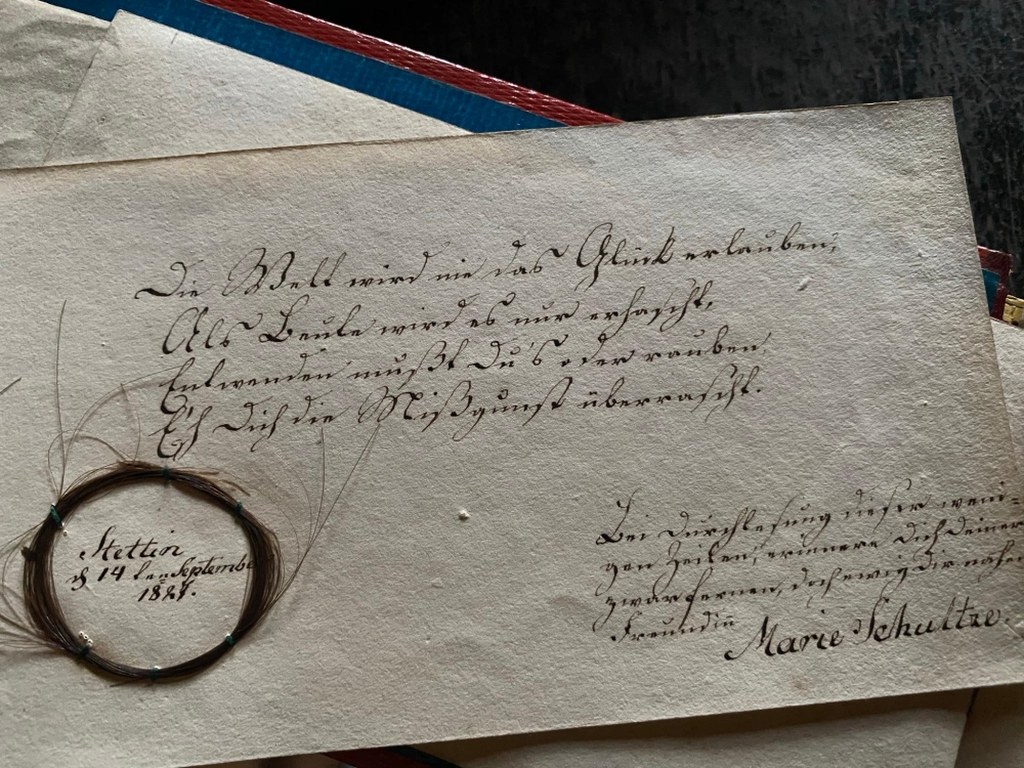 Die Welt wird nie das Glück erlauben,
Als Beute wird es nur erhascht,
Entwenden mußt Du's oder rauben
Eh Dich die Mißgunst überrascht.
Bei Durchlesung dieser weni-
gen Zeilen, erinnere Dich Deiner
zwar fernen, doch ewig Dir nahen
Freundin
Marie Schultze.
Stettin
14 ten September